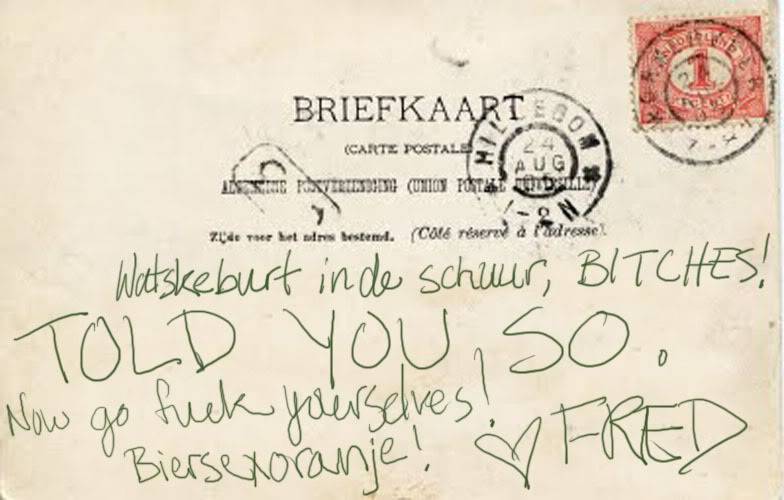 BRIEFKAART
(CARTE POSTALE)
ALGEMEENE POSTVEREENIGING (UNION POSTALE UNIVERSELLE)
Zijde voor het adres bestemd. (Côté réservé à l'adresse).
HILLEGOM
24
AUG
1-2 N
NEDERLAND
1
CENT
Watskeburt in de schuur, BITCHES!
TOLD YOU SO.
Now go fuck yourselves!
Biersexoranje! ♡ FRED